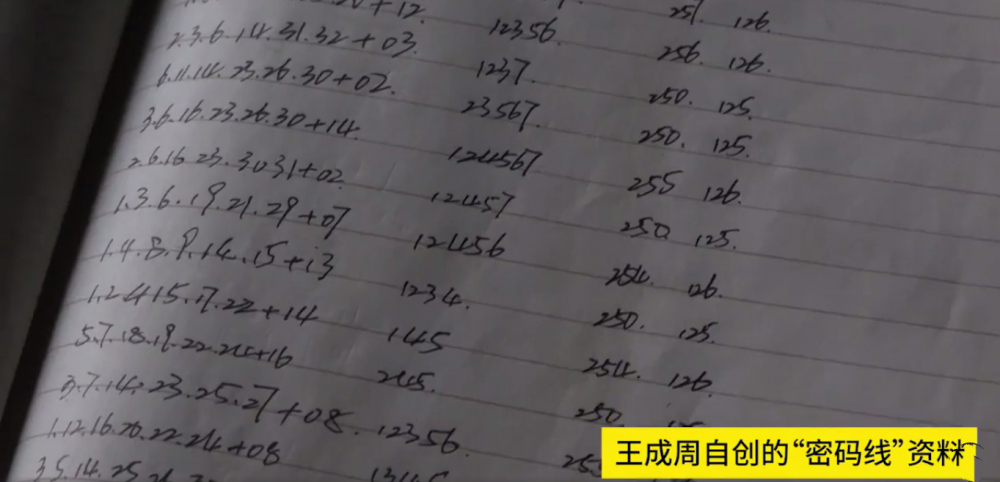 +12. 12356. 251. 126.
2.3.6.14.31.32+03. 1237. 256. 126.
6.11.14.23.26.30+02. 23567. 250. 125.
3.6.16.23.26.30+14. 124567. 250. 125.
2.6.16.23.30.31+02. 12457 255 126.
1.3.6.19.21.29+07 12456 250. 125.
1.4.8.9.14.15+13 1234. 254. 126.
1.2.4.15.17.22+14 145 250. 125.
5.7.18.19.22.24+16 245. 254. 126
3.7.14.23.25.27+08. 12356. 250
1.12.16.20.22.24+08
3.5.14.25.26.
王成周自创的“密码线”资料